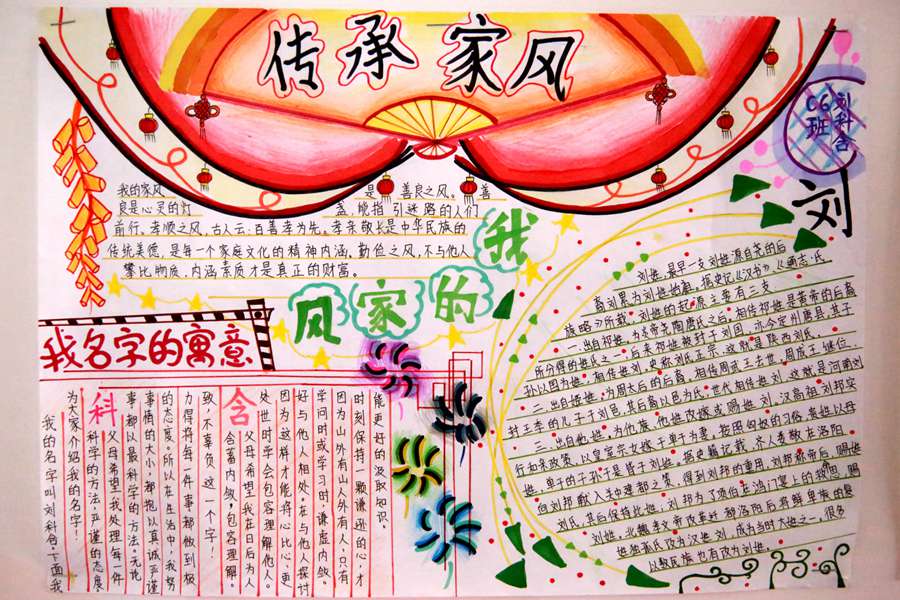 传承家风
C6班
刘科含
我的家风 是 善良之风。 善
良是心灵的灯 盏,能指 引迷路的人们
前行,孝顺之风,古人云:百善孝为先。孝亲敬长是中华民族的
传统美德,是每一个家庭文化的精神内涵,勤俭之风,不与他人
攀比物质,内涵素质才是真正的财富。
我的家风
我名字的寓意
我的名字叫刘科含,下面我
为大家介绍我的名字!
科 父母希望我处理每一件
科学的方法,严谨的态度,
事都以最科学的方法。无论
事情的大小,都抱以真诚严谨
的态度。所以在生活中,我努
力得将每一件事都做到极
致,不辜负这一个字!
含 含蓄内敛,包容理解。
父母希望我在日后为人
处世时学会包容理解他人。
因为这样才能将心比心,更
好与他人相处,在与他人探讨
学问时或学习时,谦虚内敛。
因为山外有山人外有人,只有
时刻保持一颗谦逊的心,才
能更好的汲取知识。
刘
刘姓,最早一支刘姓源自尧的后
裔刘累为刘姓始祖。据史记《汉书》《通志·氏
族略》所载。刘姓的起源主要有三支
一、出自祁姓,为帝尧陶唐氏之后。相传祁姓是黄帝的后裔
所分得的姓氏之一。后来祁姓被封于刘国,亦今定州唐县,其子
孙以国为姓。相传姓刘,史称刘氏正宗,这就是陕西刘氏。
二、出自姬姓,为周太后的后裔,相传周武王去世,周成王继位,
封王季的儿子于刘邑,其后裔以邑为氏,世代相传姓刘。这就是河南刘
三、出自他姓,为他族、他姓改姓或赐姓刘。汉高祖刘邦实
行和亲政策,以皇室宗女嫁于单于为妻。按照匈奴的习俗,贵姓以母
姓,单于的子孙于是皆于刘姓。据史籍记载,齐人娄敬在洛阳
向刘邦献入关中建都之策,得到刘邦的重用,刘邦称帝后,赐姓
刘氏。其后保持此姓。刘邦为了项伯在鸿门宴上的救恩,赐
刘姓。北魏孝文帝改革迁都洛阳后将鲜卑族的复
姓独孤氏改为汉姓刘,成为当时大姓之一。很多
少数民族也有改为刘姓。